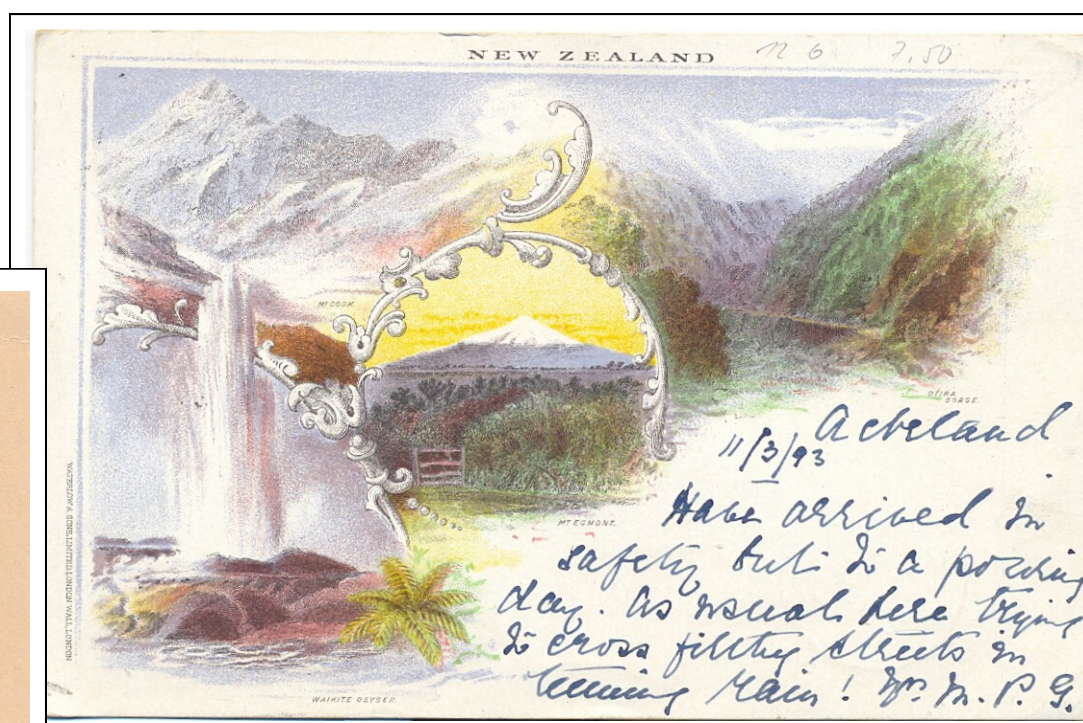 NEW ZEALAND
12 6 7,50
Mt COOK.
OTIRA
GORGE.
MT EGMONT.
WAIKITE GEYSER.
WATERLOW & SONS LIMITED, LONDON WALL, LONDON
Auckland
11/3/93
Have arrived in
safety but in a pouring
day. As usual here trying
to cross filthy streets in
teeming rain! M. P. G.